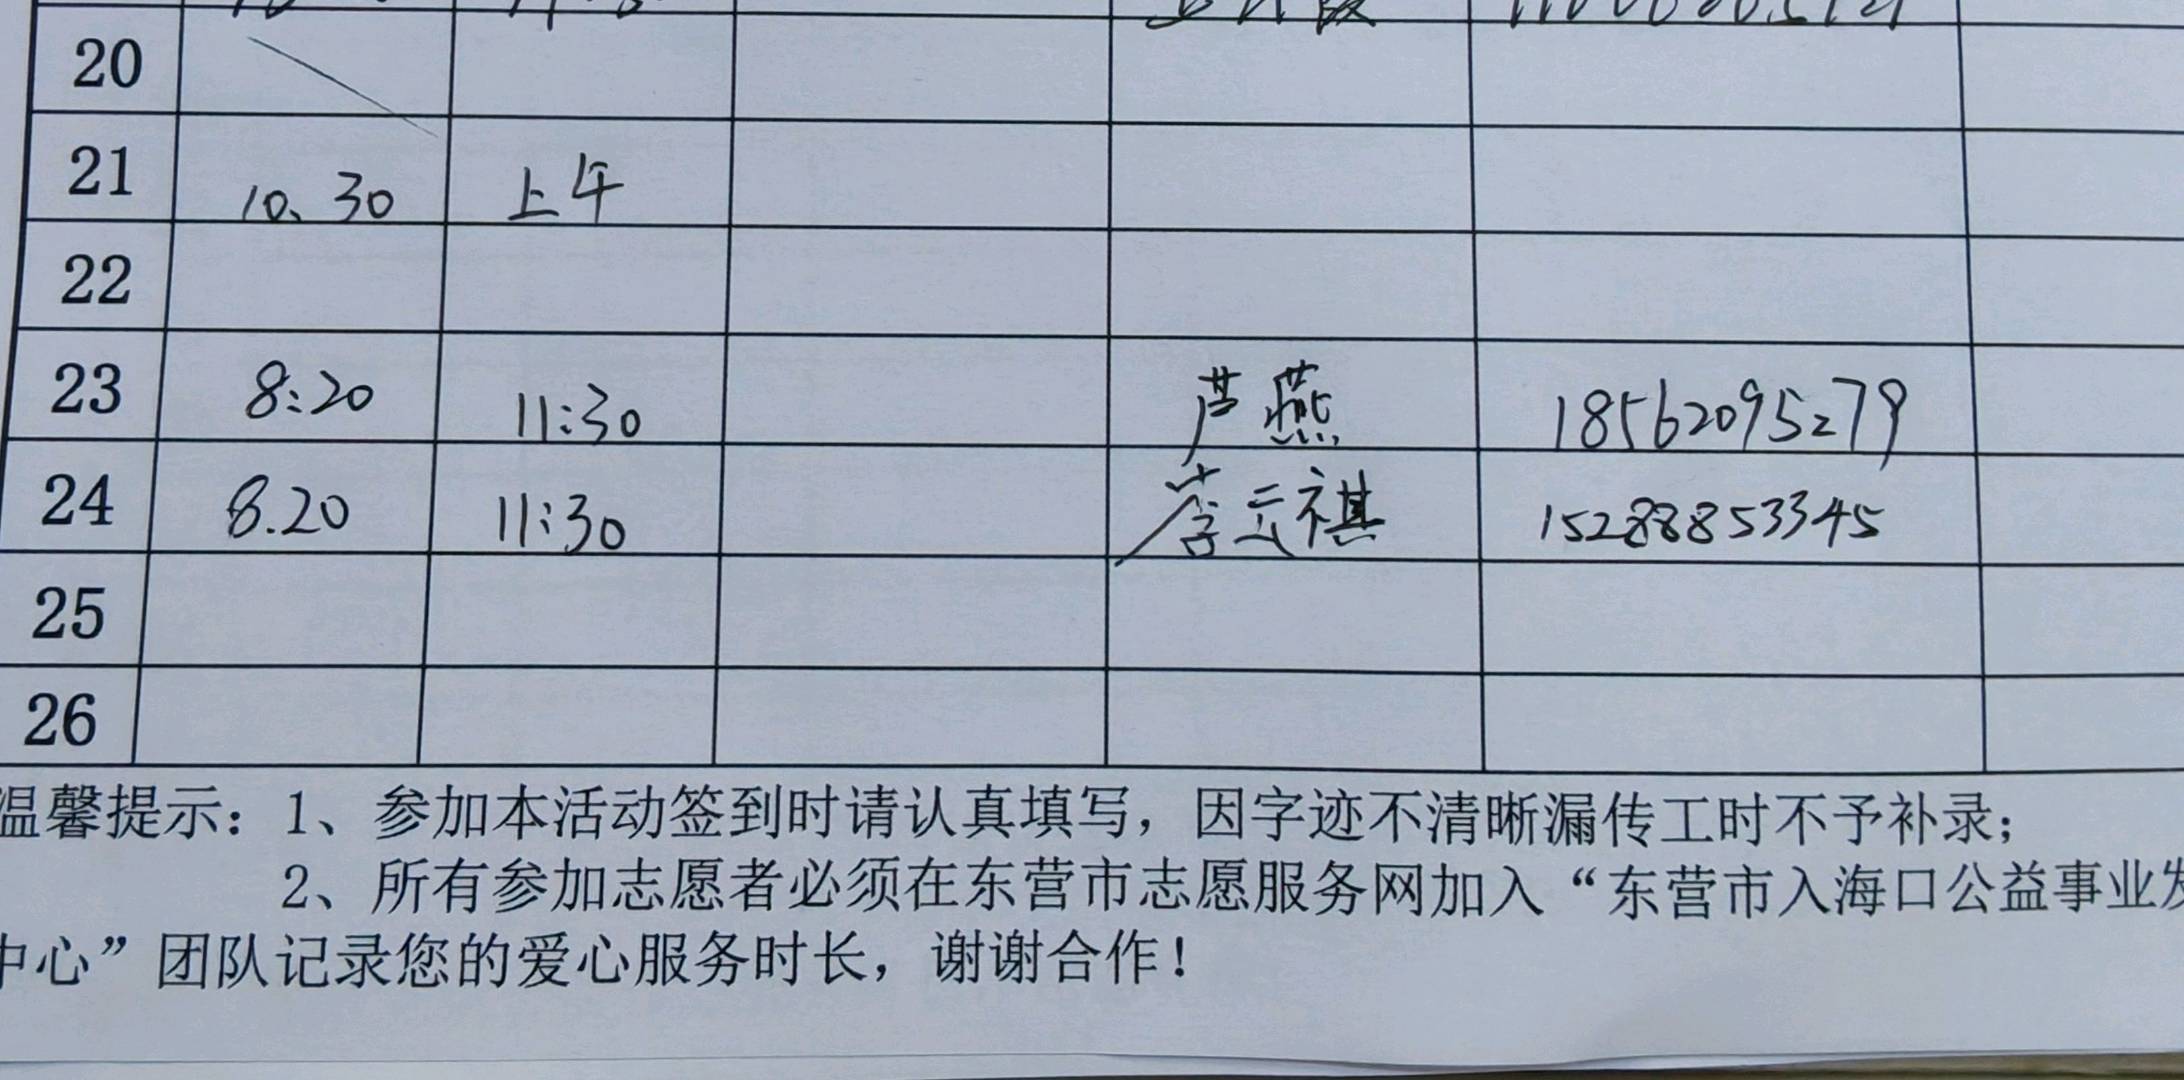 20
21 10、30 上午
22
23 8:20 11:30 芦燕 18562095279
24 8.20 11:30 李云祺 15288853345
25
26
温馨提示：1、参加本活动签到时请认真填写，因字迹不清晰漏传工时不予补录；
2、所有参加志愿者必须在东营市志愿服务网加入“东营市入海口公益事业发
中心”团队记录您的爱心服务时长，谢谢合作！